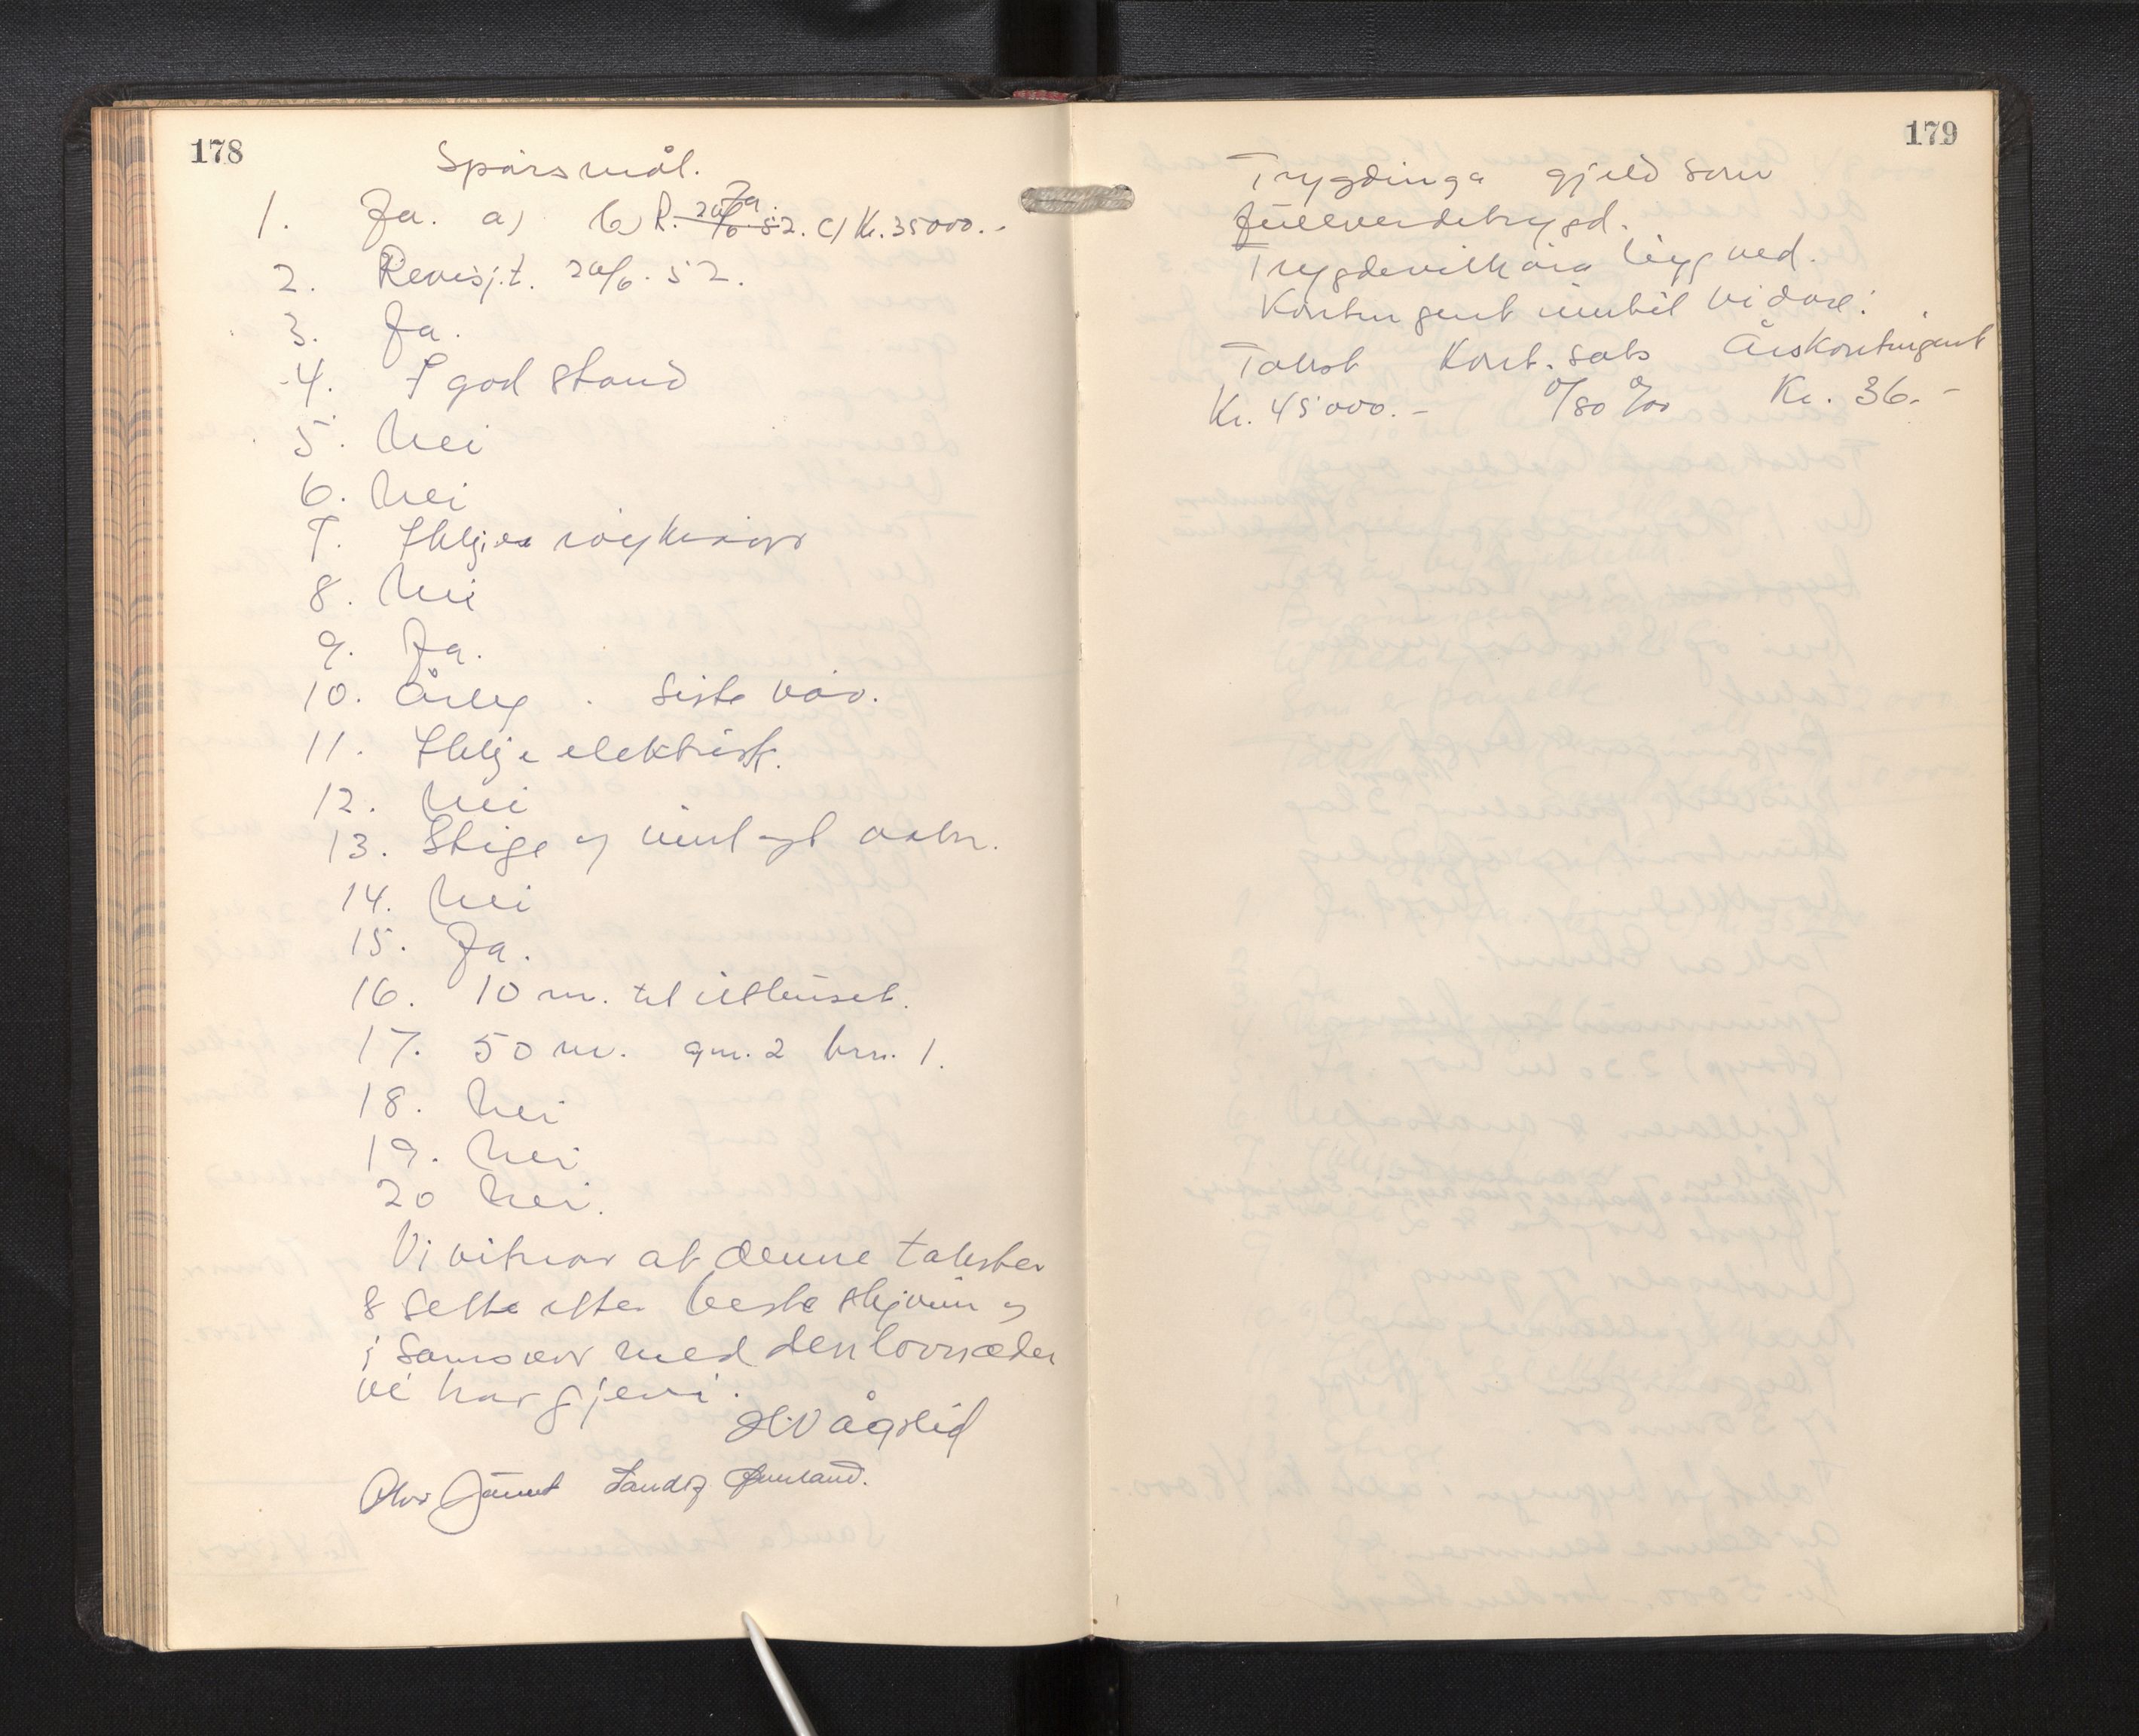 178
Spørsmål.
1. Ja. a) Ja. b) R. 20/6 52. c) Kr. 35000.-
2. Revisj.t. 20/6. 52.
3. Ja.
4. I god stand
5. Nei
6. Nei
7. Ikkje røykt
8. Nei
9. Ja.
10. Årleg. Siste vår.
11. Ikkje elektrisk.
12. Nei
13. Stige og innlagt vatn.
14. Nei
15. Ja.
16. 10 m. til uthuset.
17. 50 m. gnr. 2 brn. 1.
18. Nei
19. Nei
20 Nei.
Vi vitnar at denne taksten
e sette etter beste skjønn og
i samsvar med den lovnaden
vi har gjevi.
H Vågslid
Olav
179
Trygdinga gjeld som
fullverdetrygd.
Trygdevilkåra ligg ved.
Kontingent inntil vidare:
Takst Kont. sats Årskontingent
Kr. 45000.- 0/80 0/00 Kr. 36.-